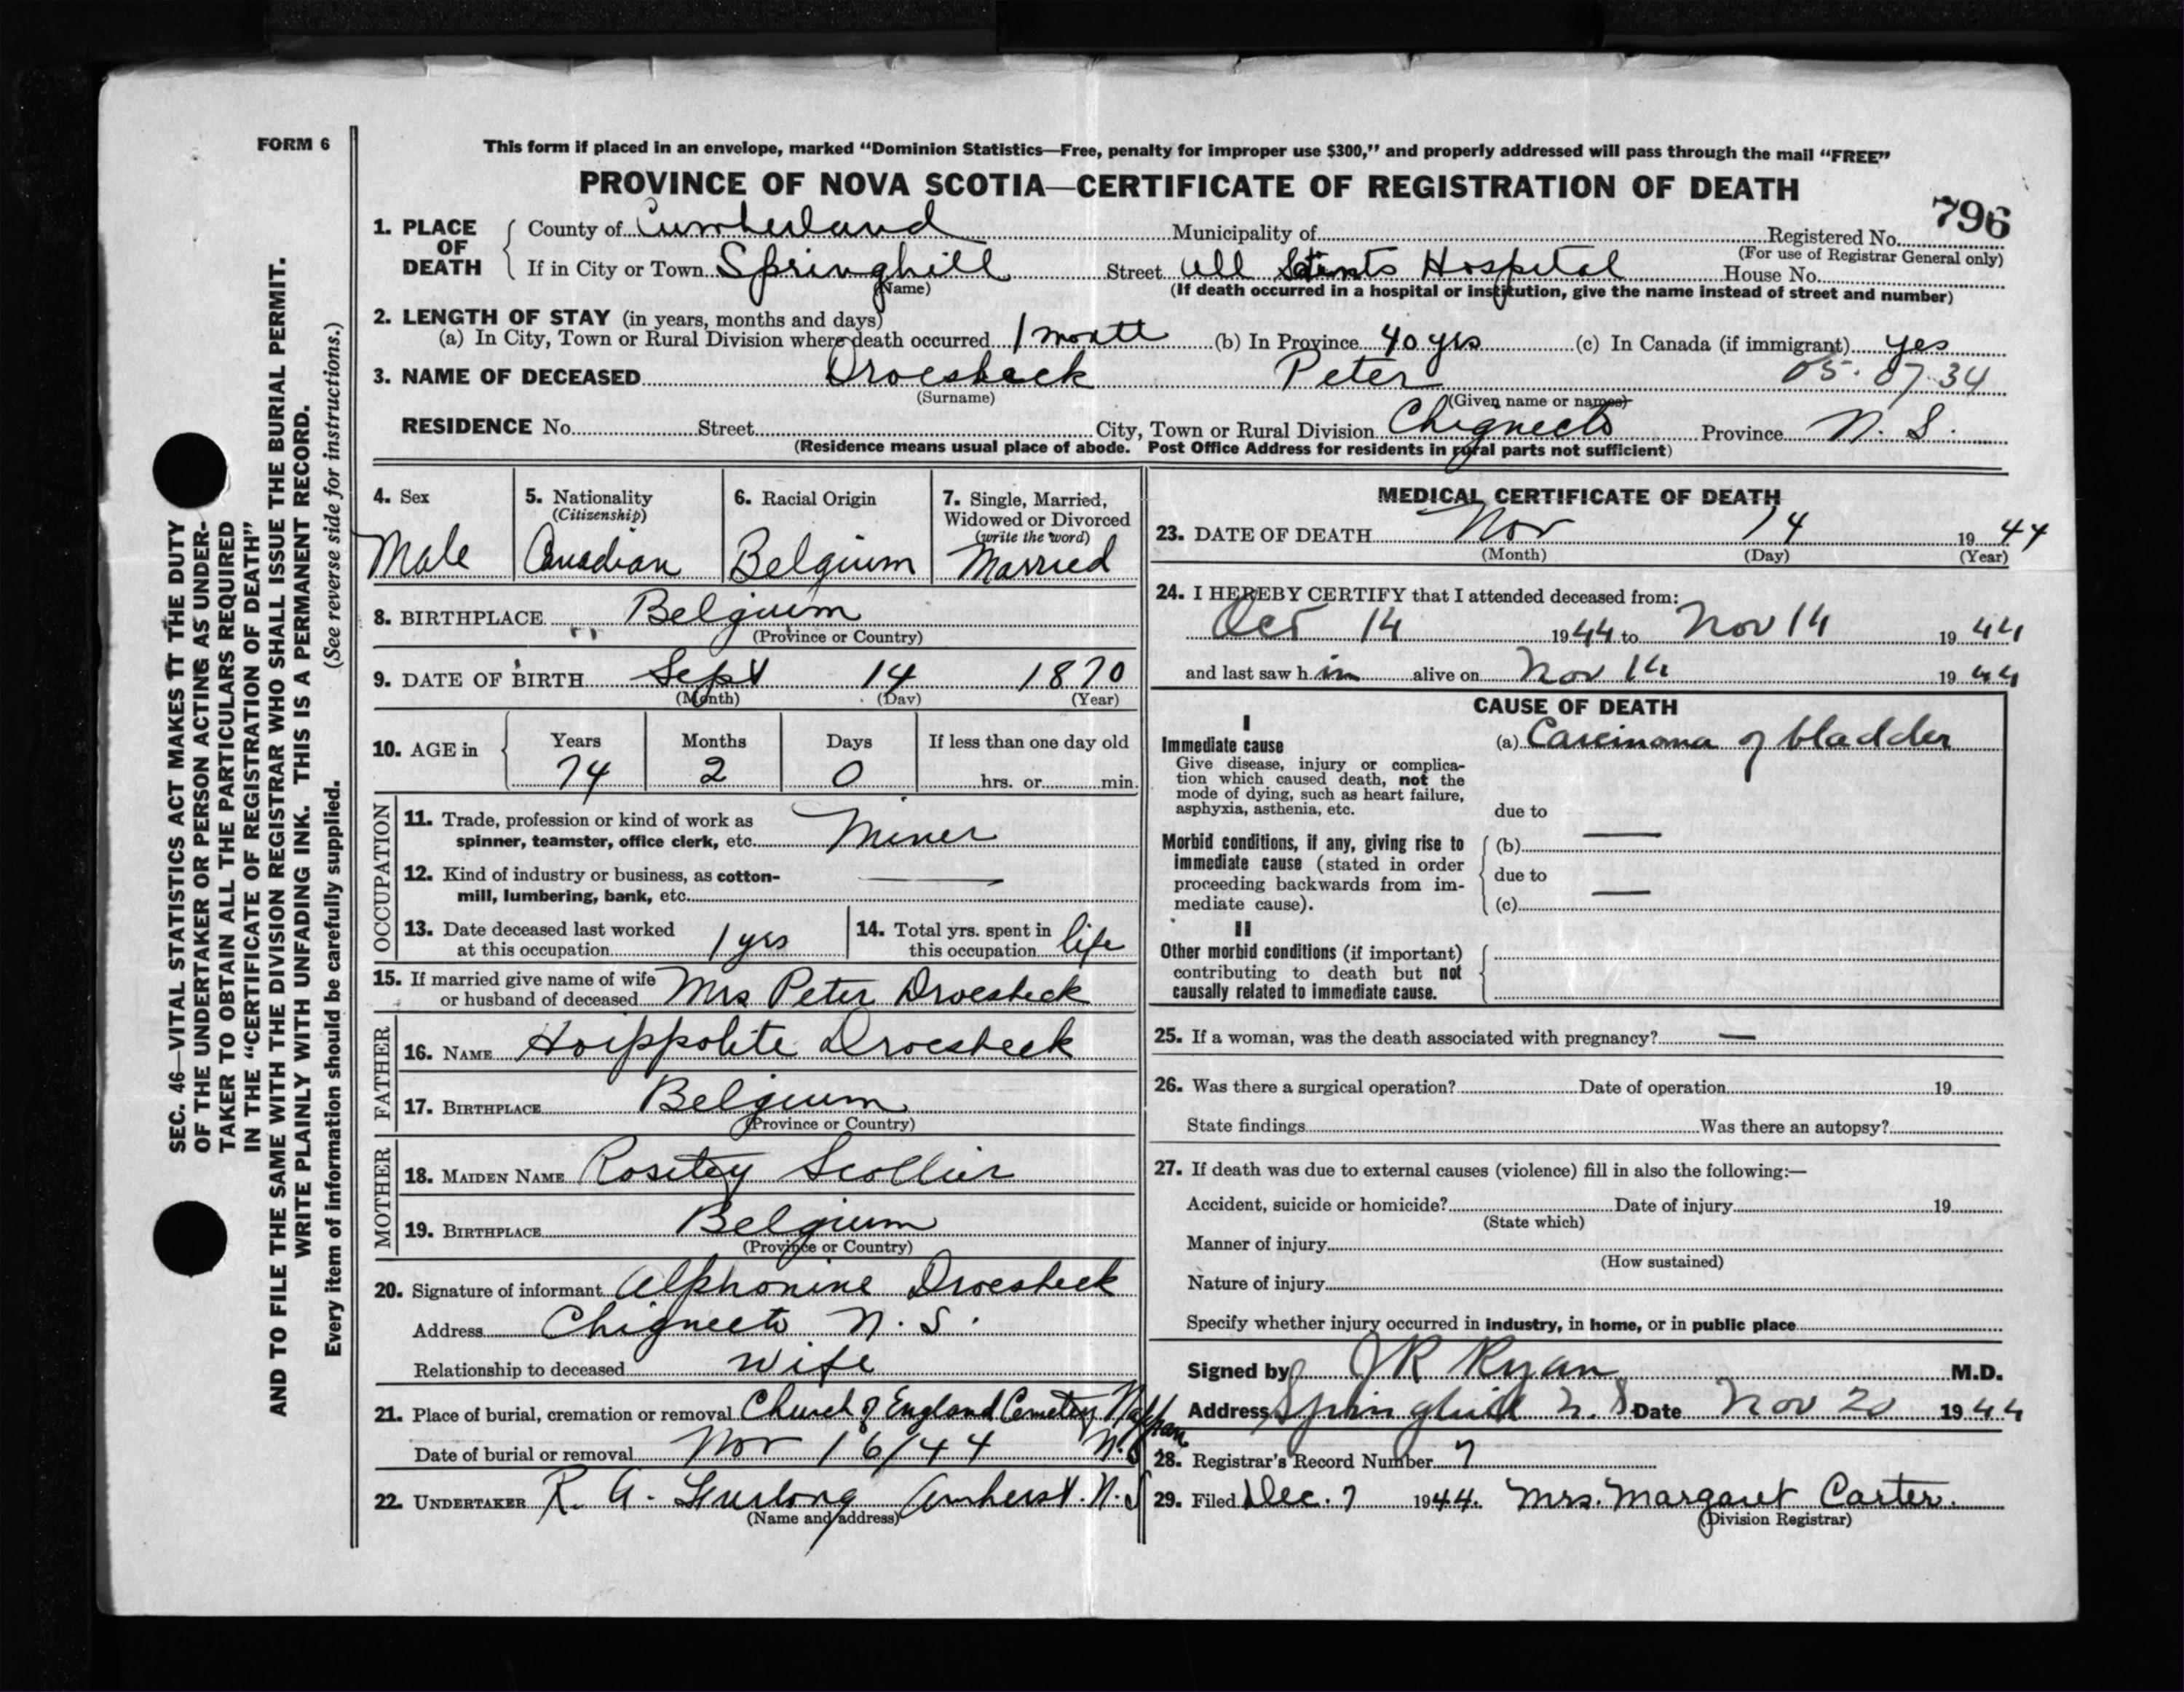 FORM 6
This form if placed in an envelope, marked “Dominion Statistics—Free, penalty for improper use $300,” and properly addressed will pass through the mail “FREE”
PROVINCE OF NOVA SCOTIA—CERTIFICATE OF REGISTRATION OF DEATH
796
1. PLACE OF DEATH { County of Cumberland Municipality of Registered No.
(For use of Registrar General only)
If in City or Town Springhill Street All Saints Hospital House No.
(Name) (If death occurred in a hospital or institution, give the name instead of street and number)
2. LENGTH OF STAY (in years, months and days)
(a) In City, Town or Rural Division where death occurred 1 month (b) In Province 40 yrs (c) In Canada (if immigrant) yes
3. NAME OF DECEASED Droesbeck Peter 05.07.34
(Surname) (Given name or names)
RESIDENCE No. Street City, Town or Rural Division Chignecto Province N. S.
(Residence means usual place of abode. Post Office Address for residents in rural parts not sufficient)
4. Sex
Male
5. Nationality
(Citizenship)
Canadian
6. Racial Origin
Belgium
7. Single, Married,
Widowed or Divorced
(write the word)
Married
8. BIRTHPLACE Belgium
(Province or Country)
9. DATE OF BIRTH Sept 14 1870
(Month) (Day) (Year)
10. AGE in { Years Months Days If less than one day old
74 2 0 hrs. or min.
OCCUPATION
11. Trade, profession or kind of work as
spinner, teamster, office clerk, etc. Miner
12. Kind of industry or business, as cotton-
mill, lumbering, bank, etc. —
13. Date deceased last worked
at this occupation 1 yrs
14. Total yrs. spent in
this occupation life
15. If married give name of wife
or husband of deceased Mrs Peter Droesbeck
FATHER
16. NAME Hoippolite Droesbeck
17. BIRTHPLACE Belgium
(Province or Country)
MOTHER
18. MAIDEN NAME Rositey Scollier
19. BIRTHPLACE Belgium
(Province or Country)
20. Signature of informant Alphonine Droesbeck
Address Chignecto N. S.
Relationship to deceased wife
21. Place of burial, cremation or removal Church of England Cemetery Nappan
Date of burial or removal Nov 16/44 N.S
22. UNDERTAKER R. A. Furlong Amherst. N.S
(Name and address)
MEDICAL CERTIFICATE OF DEATH
23. DATE OF DEATH Nov 14 1944
(Month) (Day) (Year)
24. I HEREBY CERTIFY that I attended deceased from:
Oct 14 1944 to Nov 14 1944
and last saw him alive on Nov 14 1944
CAUSE OF DEATH
I
Immediate cause
Give disease, injury or complica-
tion which caused death, not the
mode of dying, such as heart failure,
asphyxia, asthenia, etc.
(a) Carcinoma of bladder
due to
Morbid conditions, if any, giving rise to
immediate cause (stated in order
proceeding backwards from im-
mediate cause).
(b) —
due to
(c) —
II
Other morbid conditions (if important)
contributing to death but not
causally related to immediate cause.
25. If a woman, was the death associated with pregnancy? —
26. Was there a surgical operation? Date of operation 19
State findings Was there an autopsy?
27. If death was due to external causes (violence) fill in also the following:—
Accident, suicide or homicide? Date of injury 19
(State which)
Manner of injury
(How sustained)
Nature of injury
Specify whether injury occurred in industry, in home, or in public place
Signed by J R Ryan M.D.
Address Springhill N. S Date Nov 20 1944
28. Registrar's Record Number 7
29. Filed Dec. 7 1944. Mrs. Margaret Carter.
(Division Registrar)
SEC. 46—VITAL STATISTICS ACT MAKES IT THE DUTY
OF THE UNDERTAKER OR PERSON ACTING AS UNDER-
TAKER TO OBTAIN ALL THE PARTICULARS REQUIRED
IN THE “CERTIFICATE OF REGISTRATION OF DEATH”
AND TO FILE THE SAME WITH THE DIVISION REGISTRAR WHO SHALL ISSUE THE BURIAL PERMIT.
WRITE PLAINLY WITH UNFADING INK. THIS IS A PERMANENT RECORD.
Every item of information should be carefully supplied. (See reverse side for instructions.)